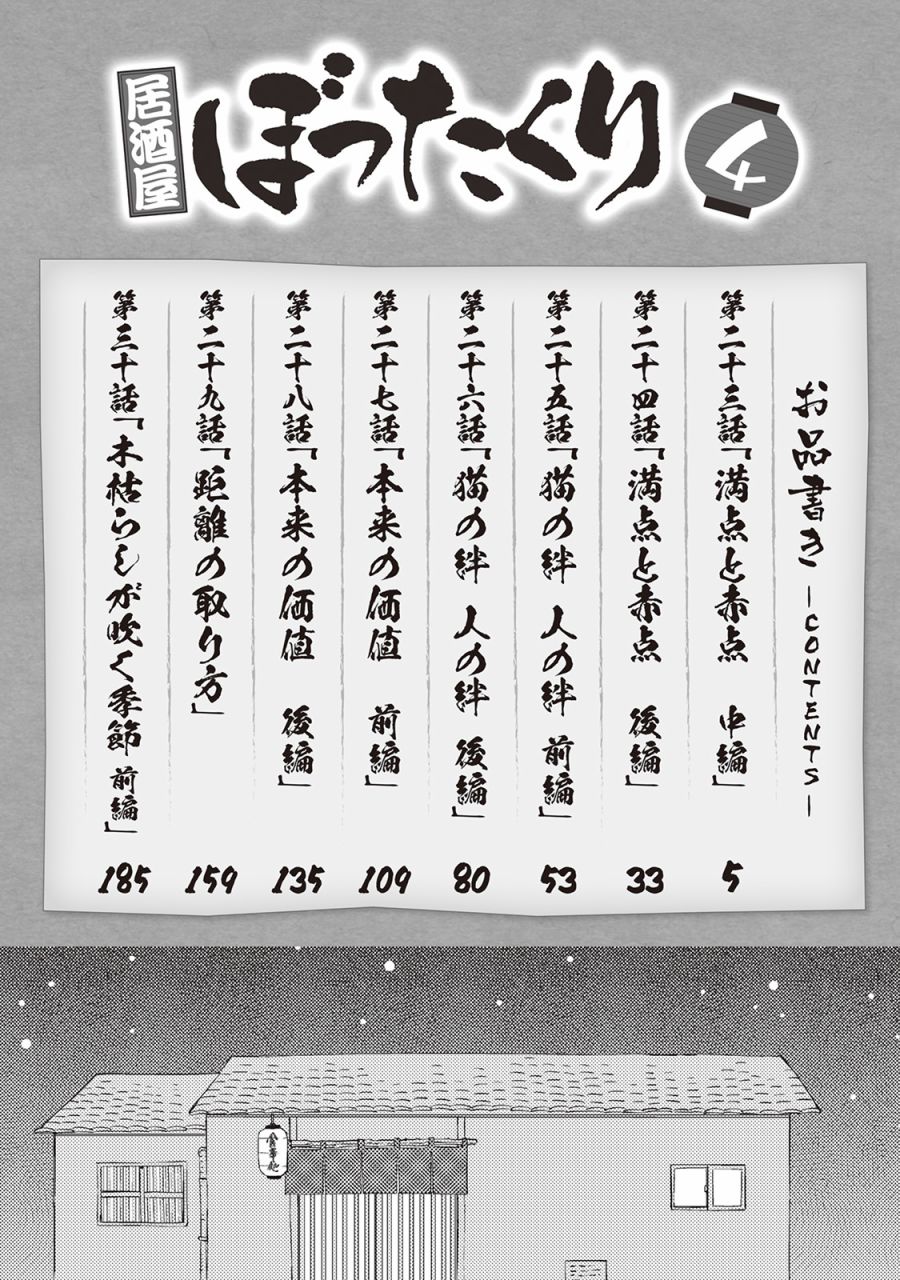 居酒屋
ぼったくり
4
お品書き —CONTENTS—
第二十三話「満点と赤点 中編」 5
第二十四話「満点と赤点 後編」 33
第二十五話「猫の絆 人の絆 前編」 53
第二十六話「猫の絆 人の絆 後編」 80
第二十七話「本来の価値 前編」 109
第二十八話「本来の価値 後編」 135
第二十九話「距離の取り方」 159
第三十話「木枯らしが吹く季節 前編」 185
食事処